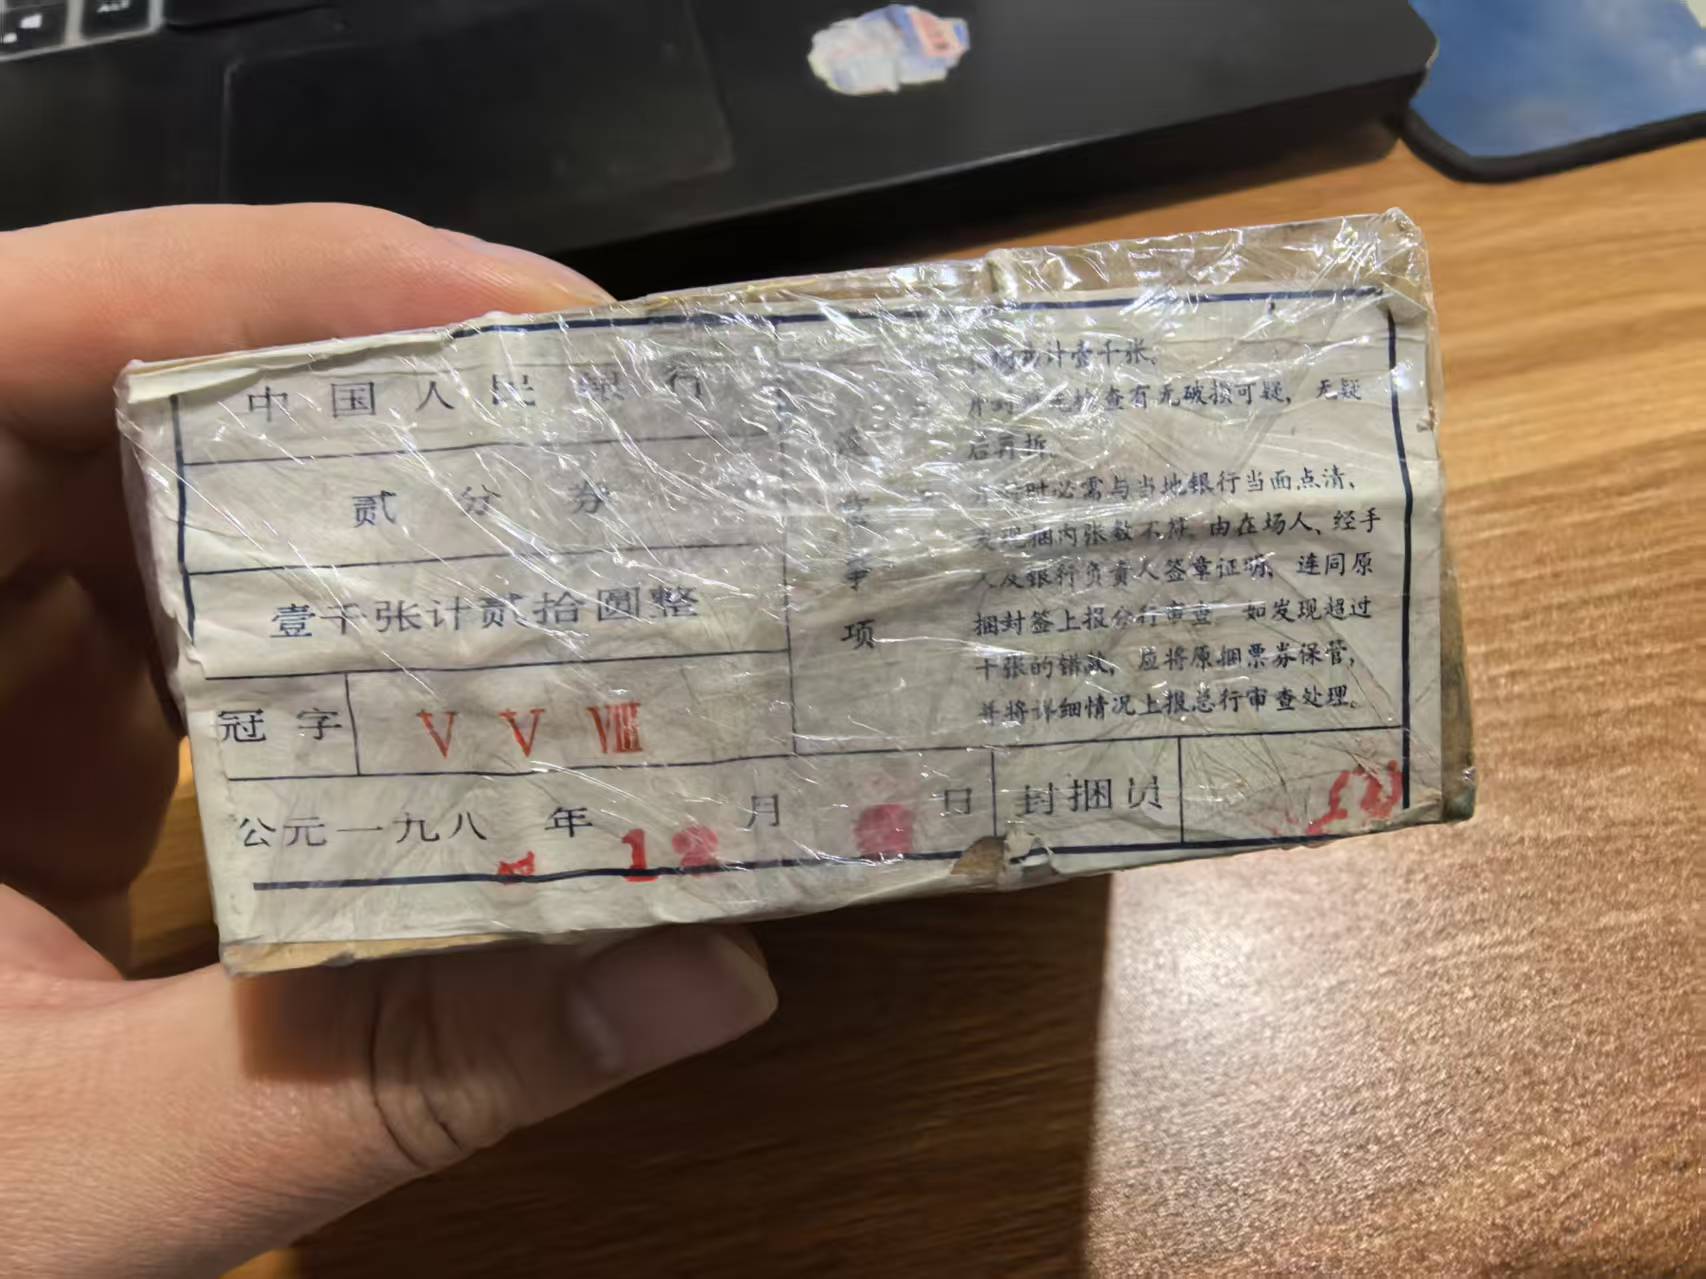 ALT
中国人民银行
贰分券
壹千张计贰拾圆整
冠字
V V Ⅷ
公元一九八 年 12 月 日
封捆员
事项
计壹千张。
查有无破损可疑，无疑
后再拆
时必需与当地银行当面点清，
发现捆内张数不符，由在场人、经手
人及银行负责人签章证明，连同原
捆封签上报分行审查 如发现超过
千张的错款，应将原捆票券保管，
并将详细情况上报总行审查处理。